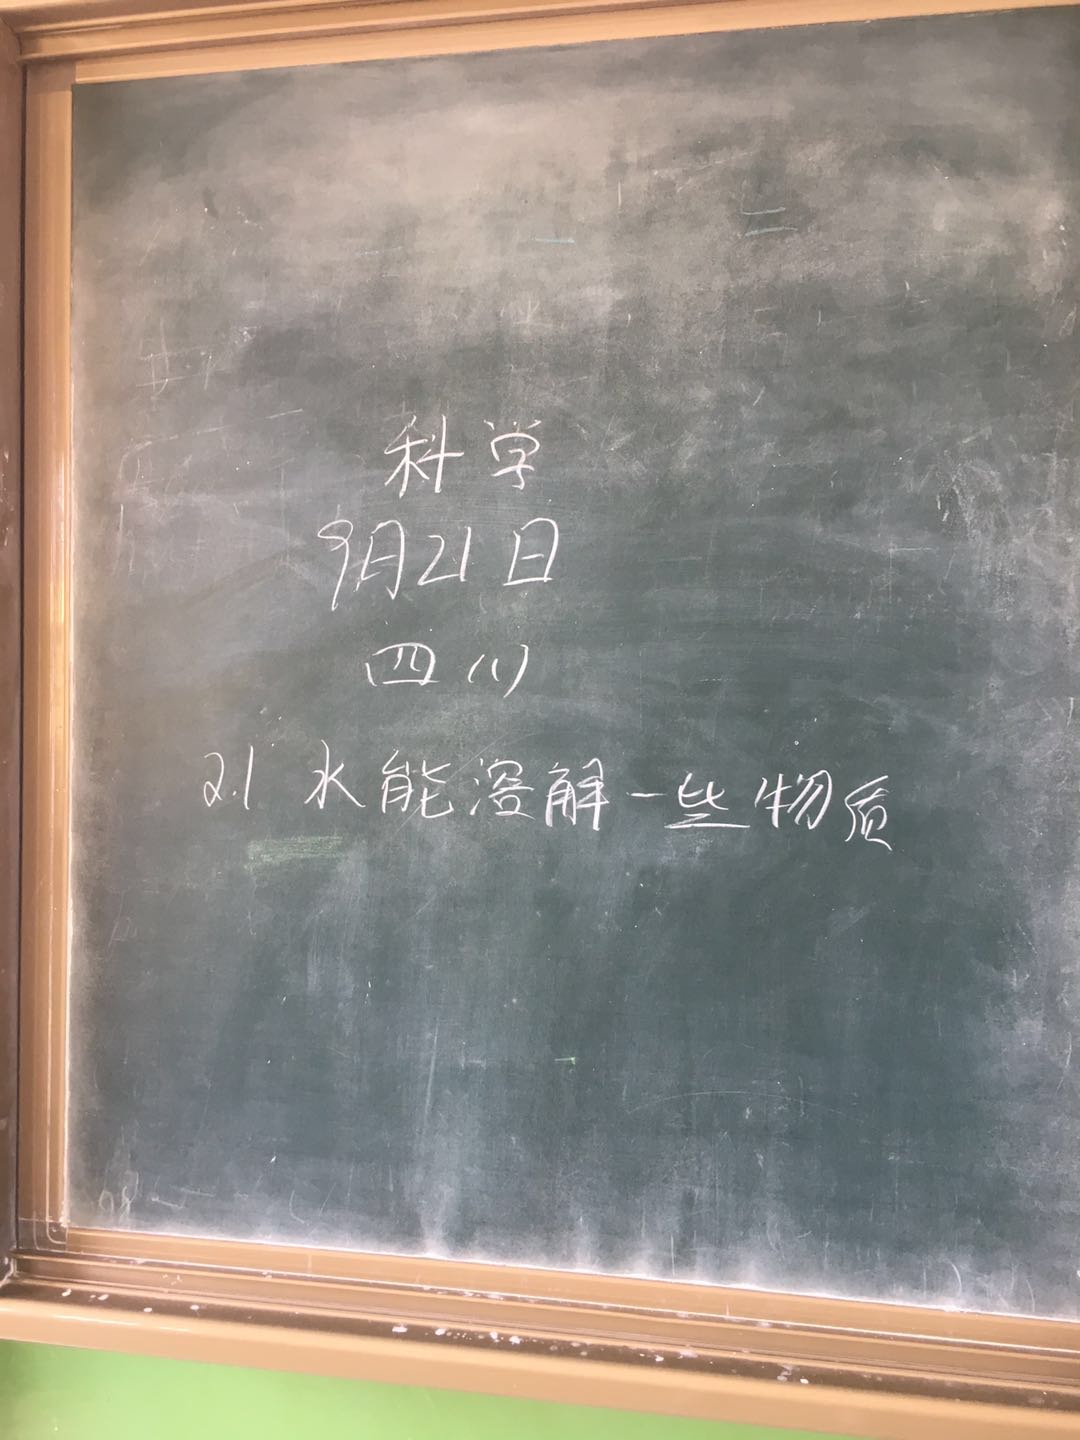 科学
9月21日
四(1)
2.1 水能溶解一些物质